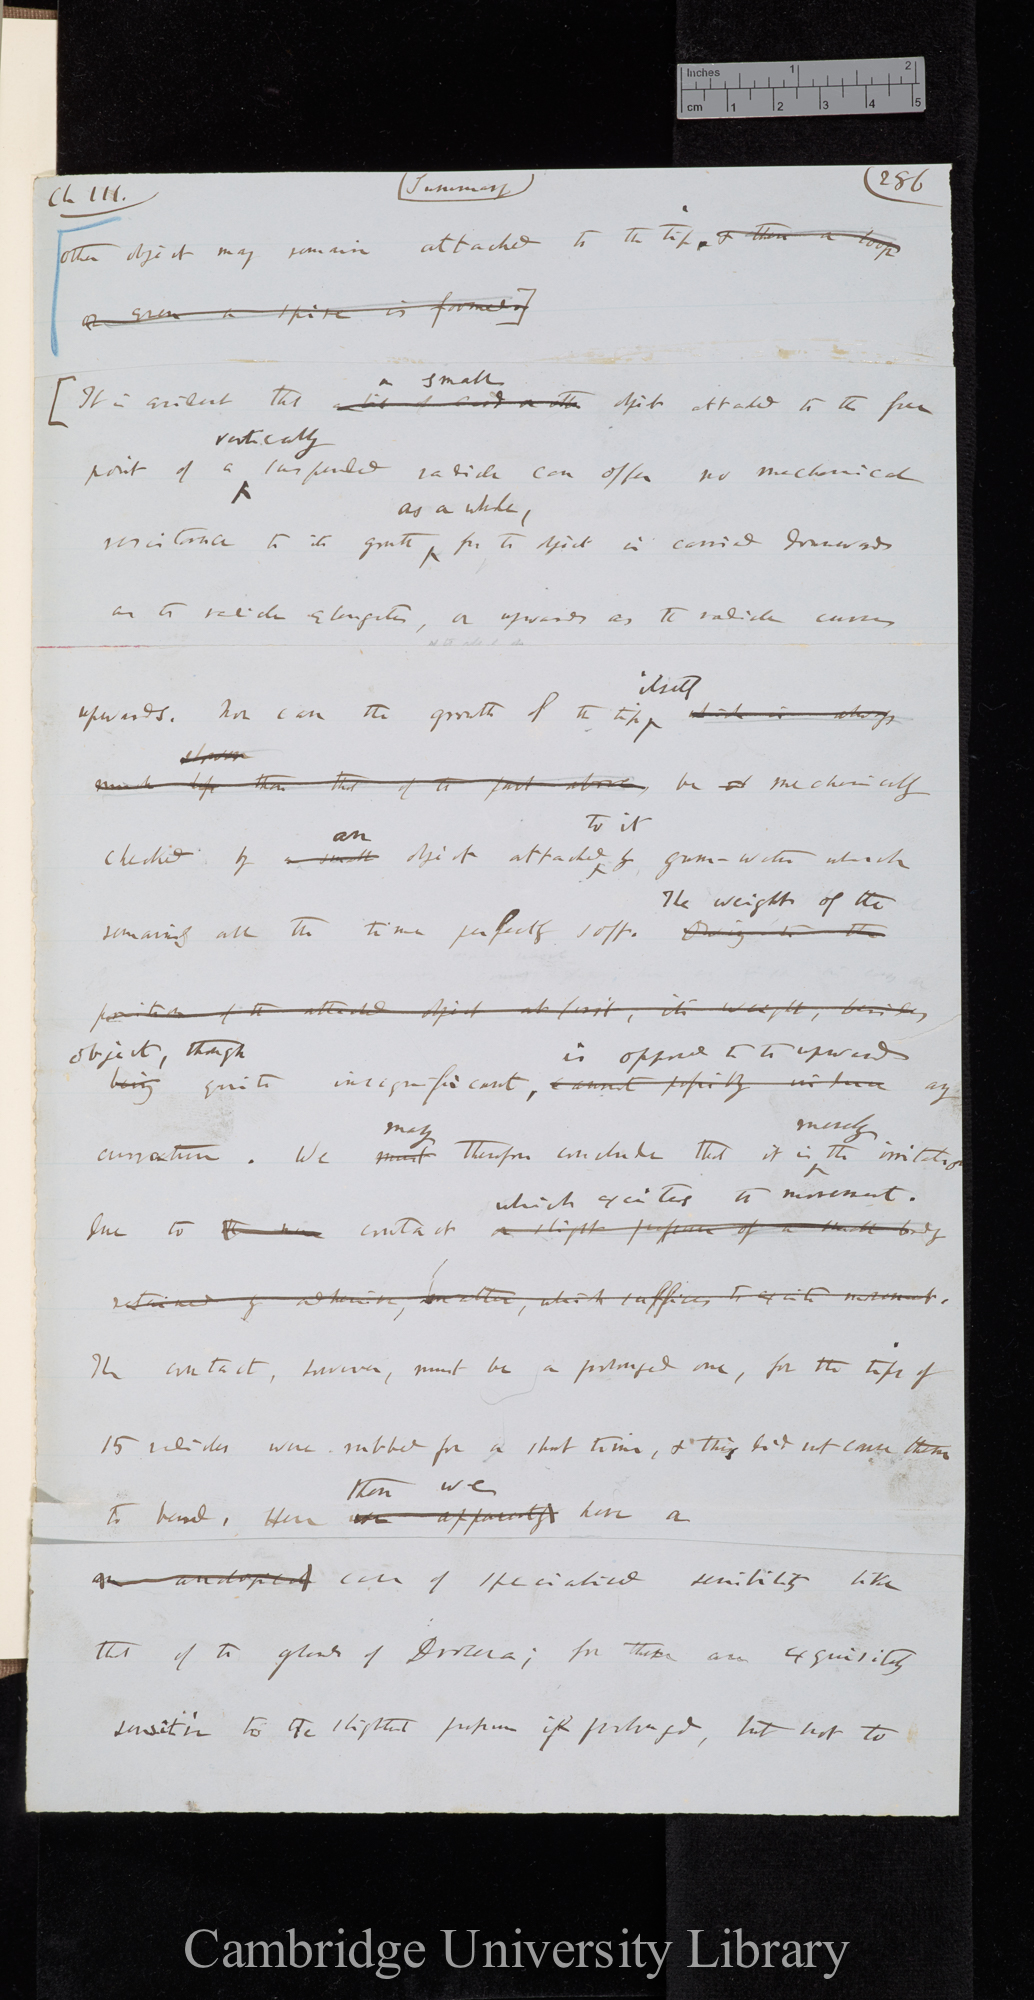 Inches 1 2
cm 1 2 3 4 5
Ch III. (Summary) (286
other object may remain attached to the tip, & then a loop
or even a spire is formed.]
a small
[It is evident that a bit of card or other object attached to the free
vertically
point of a suspended radicle can offer no mechanical
as a whole,
resistance to its growth, for the object is carried downwards
as the radicle elongates, or upwards as the radicle curves
itself
upwards. Nor can the growth of the tip, which is always
slower
much less than that of the part above, be mechanically
an to it
checked by a small object attached by gum-water which
The weight of the
remains all the time perfectly soft. Owing to the
position of the attached object at first, its weight, besides
object, though is opposed to the upward
being quite insignificant, cannot possibly induce any
may merely
curvature. We must therefore conclude that it is the irritation
which excites the movement.
due to the mere contact or slight pressure of a small body
retained by adhesion, which suffices to excite movement.
The contact, however, must be a prolonged one, for the tips of
15 radicles were rubbed for a short time, & this did not cause them
then we
to bend. Here we apparently have a
case of specialised sensibility like
that of the glands of Drosera; for these are exquisitely
sensitive to the slightest pressure if prolonged, but not to
Cambridge University Library